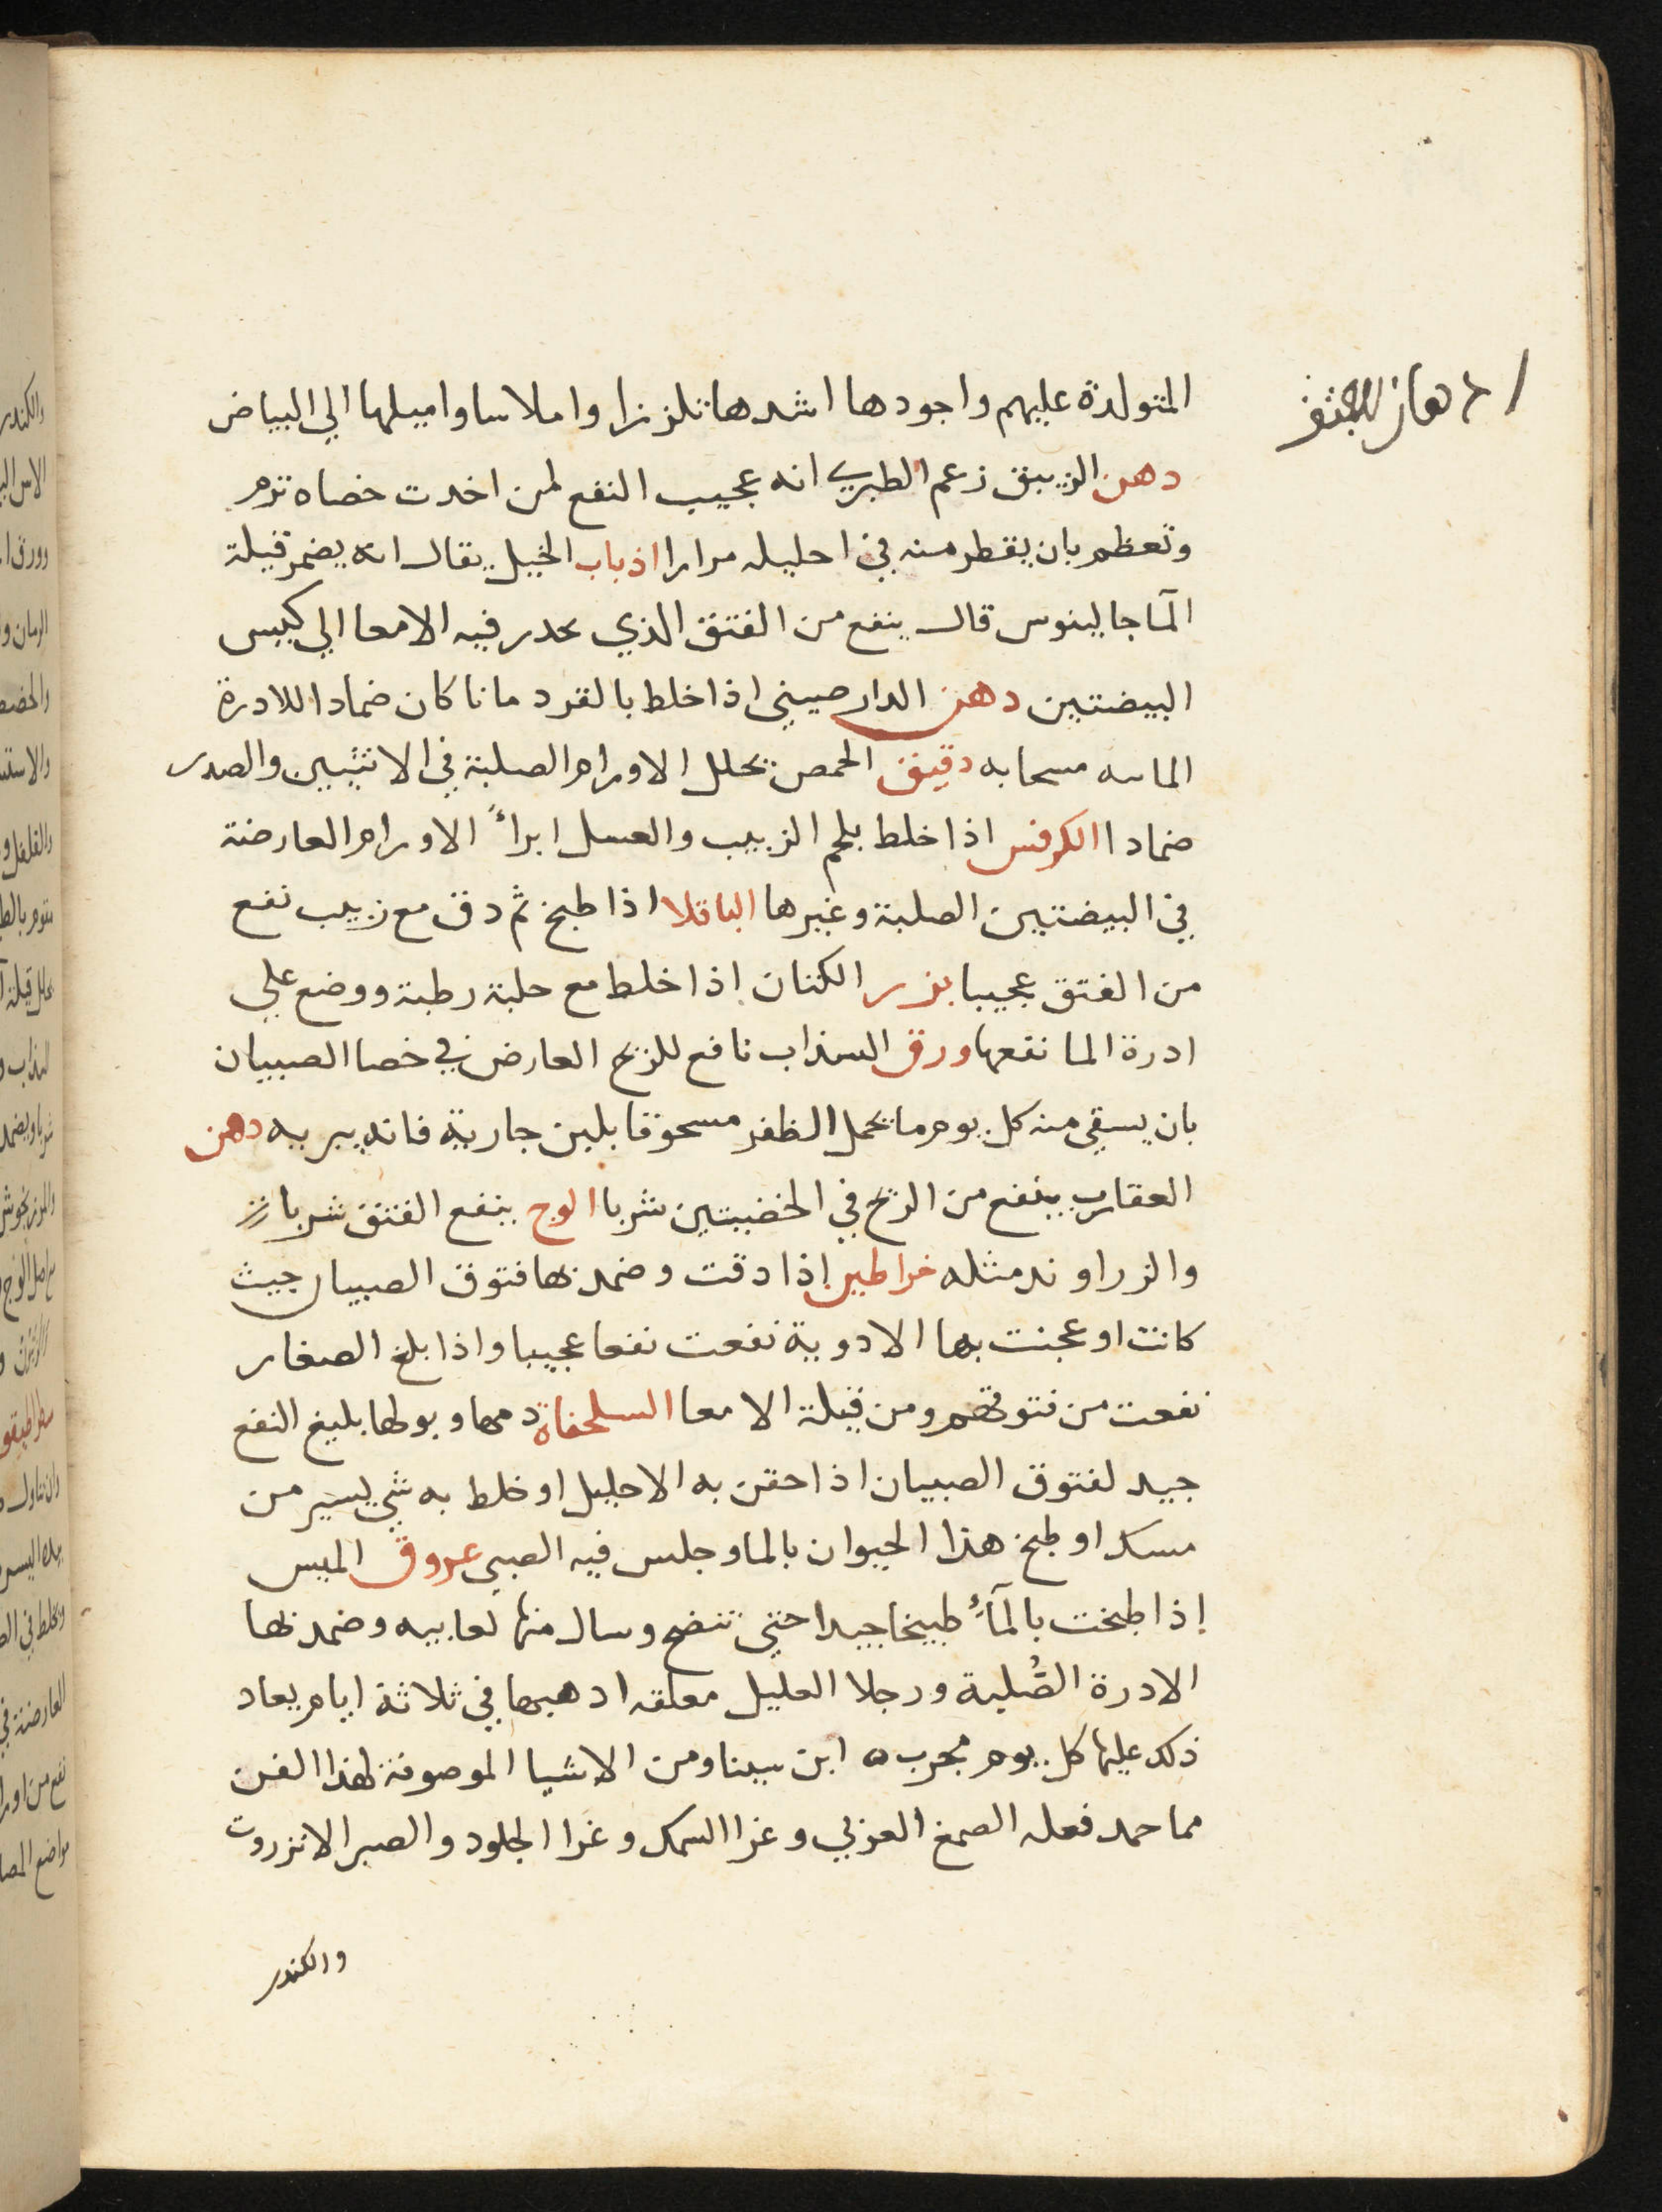 المتولدة عليهم واجودها اشدها تلززا واملاسا واميلها الي البياض
دهن الزيبق زعم الطبري انه عجيب النفع لمن اخدت خصاه ترم
وتعظم بان يقطر منه في احليله مرارا اذباب الخيل يقال انه يضمر قيلة
المآ جالينوس قال ينفع من الفتق الذي يحدر فيه الامعا الي كيس
البيضتين دهن الدارصيني اذا خلط بالقردمانا كان ضمادا للادرة
المابيه مسحا به دقيق الحمص يحلل الاورام الصلبة في الانثيين والصدر
ضمادا الكرفس اذا خلط بلحم الزبيب والعسل ابراً الاورام العارضة
في البيضتين الصلبة وغيرها الباقلا اذا طبخ ثم دق مع زبيب نفع
من الفتق عجيبا بزر الكتان اذا خلط مع حلبة رطبة ووضع علي
ادرة الما نفعها ورق السذاب نافع للريح العارض في خصا الصبيان
بان يسقي منه كل يوم ما يحمل الظفر مسحوقا بلبن جارية فانه يبريه دهن
العقارب ينفع من الريح في الخضيتين شربا الوج ينفع الفتق شربا
والزراوند مثله خراطين اذا دقت وضمد بها فتوق الصبيان حيث
كانت او عجنت بها الادوية نفعت نفعا عجيبا واذا بلغ الصغار
نفعت من فتوقهم ومن قيلة الامعا السلحفاة دمها وبولها بليغ النفع
جيد لفتوق الصبيان اذا حقن به الاحليل او خلط به شي يسير من
مسك او طبخ هذا الحيوان بالما وجلس فيه الصبي عروق الميس
إذا طبخت بالمآء طبيخا جيدا حتي تنضج وسال منها لعابيه وضمد بها
الادرة الصُلبة ورجلا العليل معلقه اذهبها في ثلاثة ايام يعاد
ذلك عليها كل يوم مجرب ه ابن سينا ومن الاشيا الموصوفة لهذا الفن
مما حمد فعله الصمغ العربي وغرا السمك وغرا الجلود والصبر الانزروت
والكندر